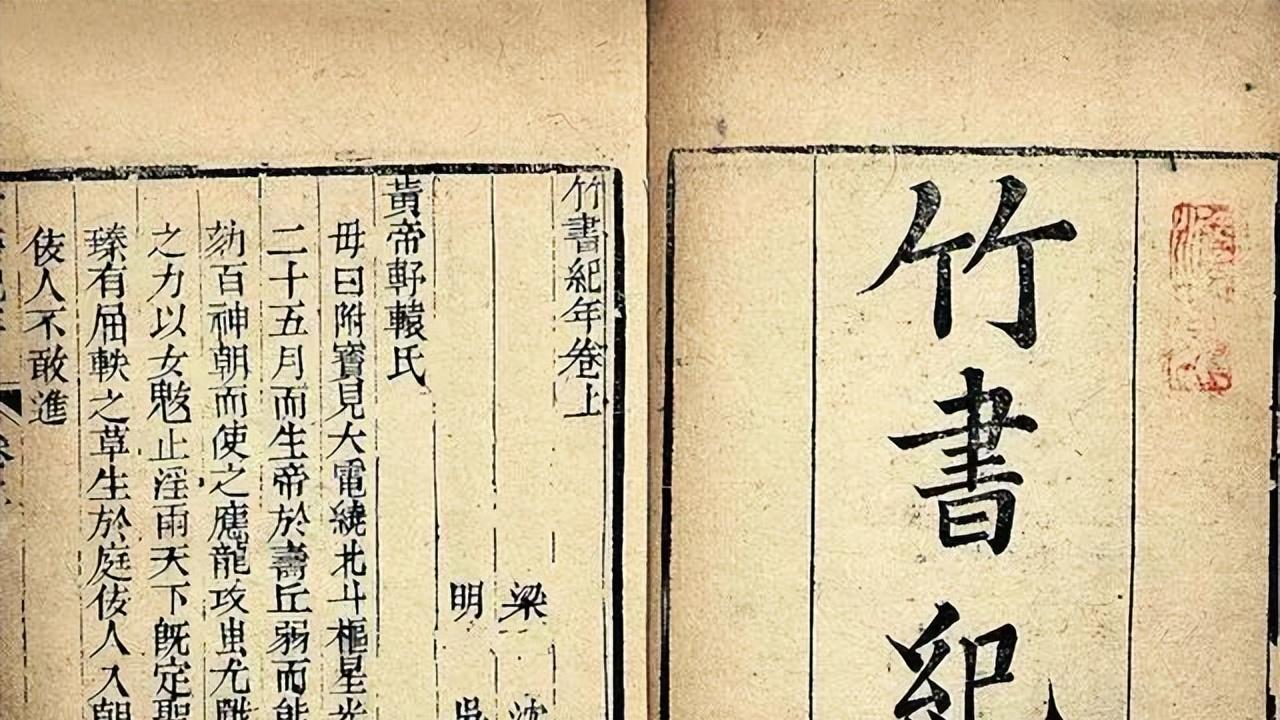 竹書紀
竹書紀年卷上
梁 沈
明
黃帝軒轅氏
母曰附寶見大電繞北斗樞星光
二十五月而生帝於壽丘弱而能
劾百神朝而使之應龍攻蚩尤戰
之力以女魃止淫雨天下既定聖
瑧有屈軼之草生於庭佞人入朝
佞人不敢進